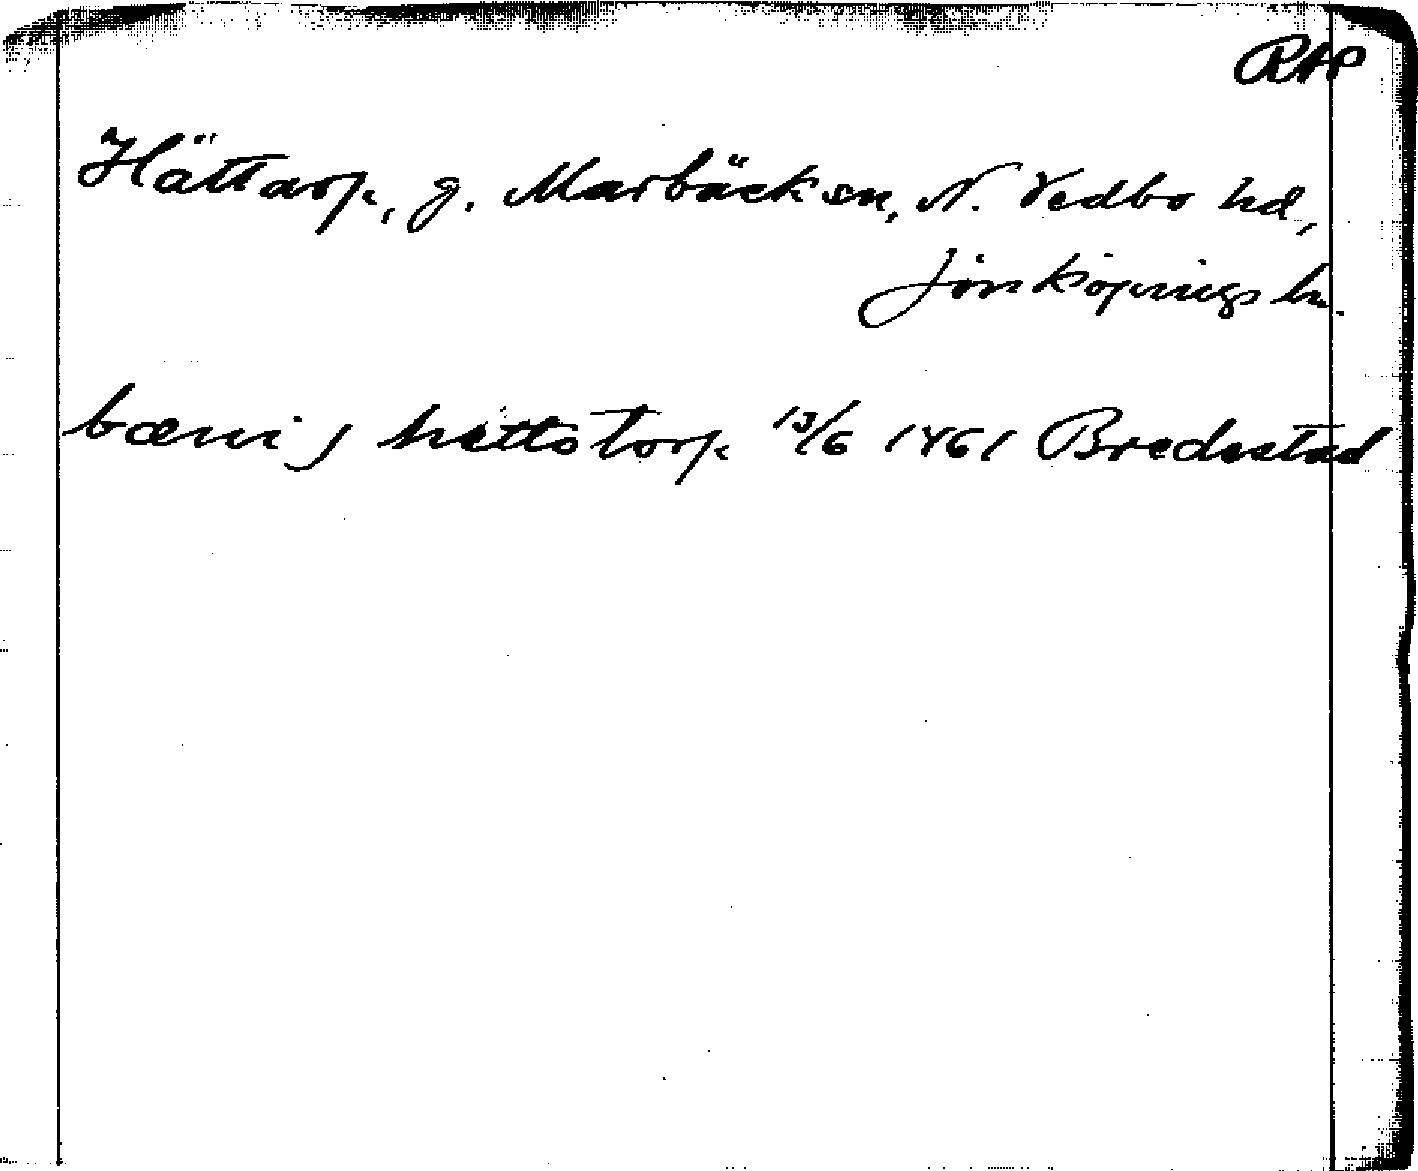 RAP
Hättarp, g. Marbäck sn, N. Vedbo hd,
Jönköpings ln.
bœni j hättstorp 13/6 1461 Bredestad